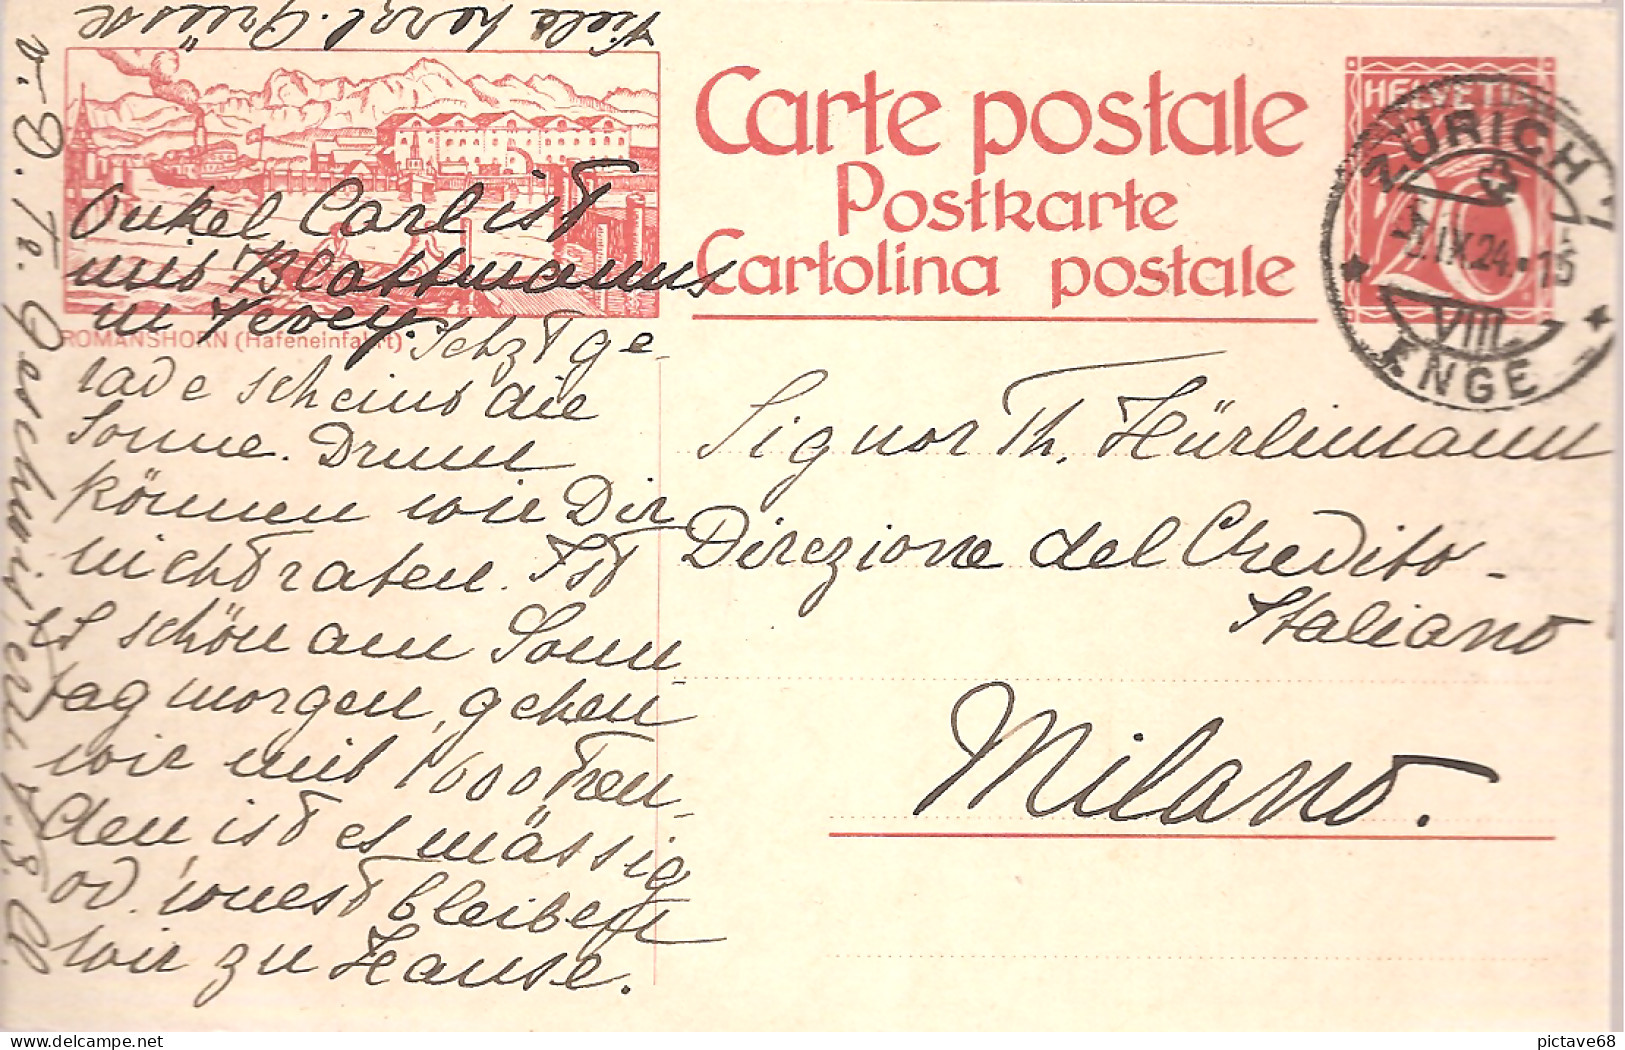 Viele herzl. Grüsse
v. D. Te. Geschwister
Onkel Carl ist
mit Blattmanns
in Vevey. Jetzt ge-
rade scheint die
Sonne. Drum
können wir Dir
nicht raten. Ist
es schön am Sonn-
tagmorgen, gehen
wir mit 1000 Freu-
den ist es mässig
od. wüest bleiben
wir zu Hause.
ROMANSHORN (Hafeneinfahrt)
Carte postale
Postkarte
Cartolina postale
HELVETIA
20
ZÜRICH
IX.24.-15
VIII.
ENGE
Signor Th. Hürlimann
Direzione del Credito-
Italiano
Milano.
pictave68